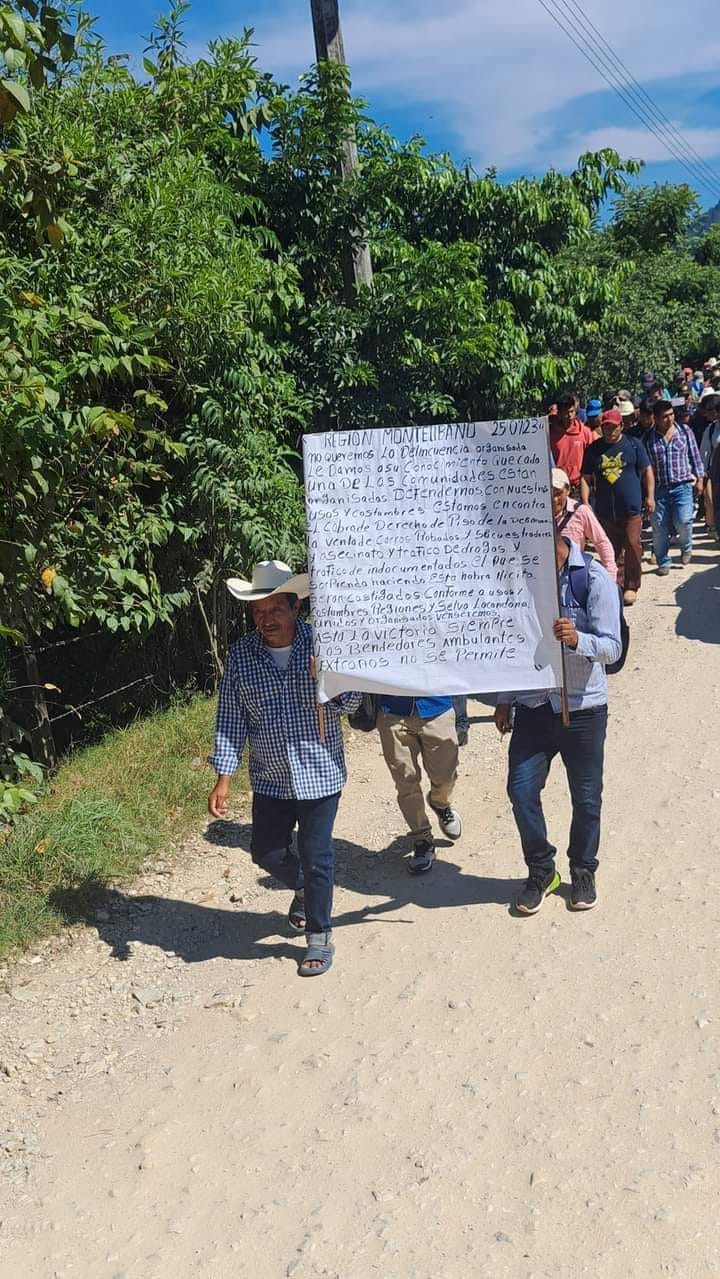 REGION MONTELIBANO 25 07 23
no queremos La Delincuencia organisada
Le Damos a su Conocimiento que cada
una DE Las Comunidades estan
organisadas DEFendemos con nuestros
usos y costumbres estamos encontra
EL Cobra de Derecho de Piso de la
La venta de Carros Robados y Secuestradores
asecinato y trafico De drogas y
trafico de indocumentados El que se
sorprenda haciendo esta hobra ilicita
seran castigados Conforme a usos y
costumbres Regiones y Selva Lacandona
unidos y organisados venseremos,
Asta La victoria siempre
Los Bendedores Ambulantes
Extraños no se Permite